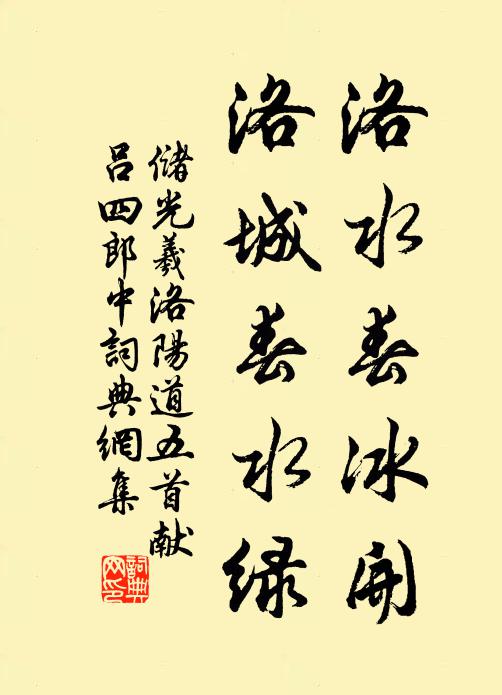 洛水春冰開
洛城春水绿
儲光羲洛陽道五首献
吕四郎中詞典網集
詞典
网印